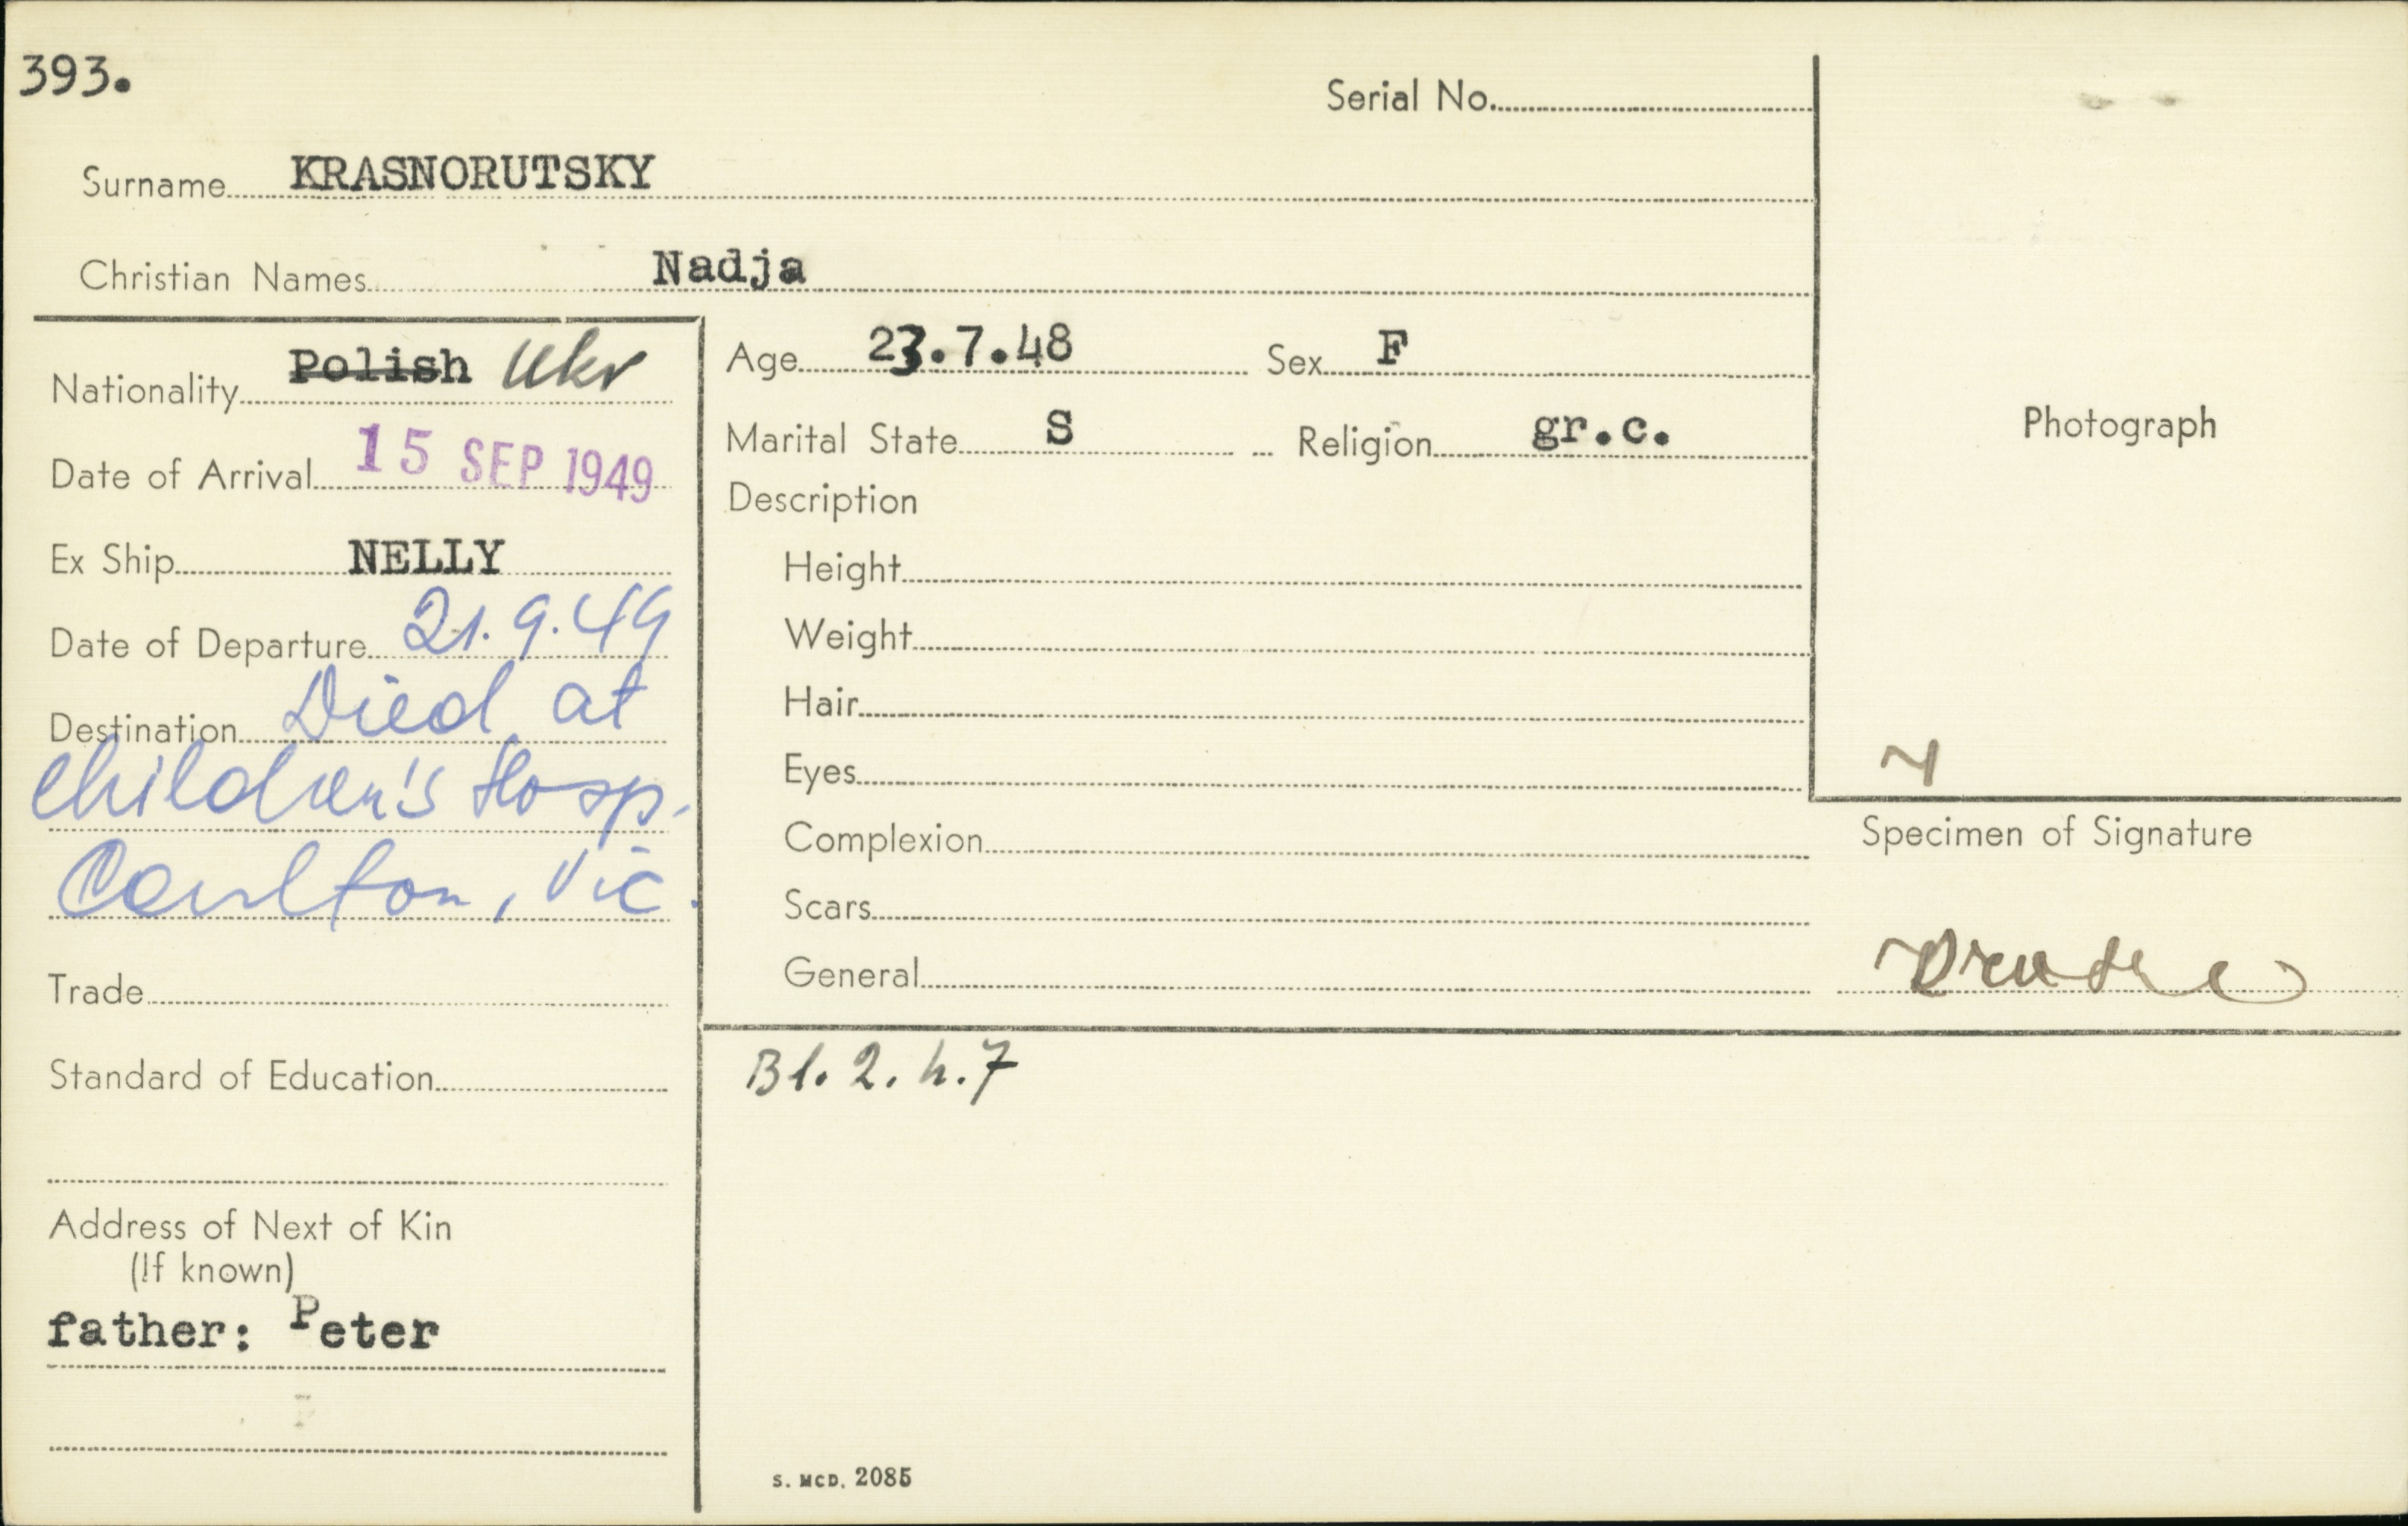 393.
Serial No.
Surname KRASNORUTSKY
Christian Names Nadja
Nationality Polish Ukr
Date of Arrival 15 SEP 1949
Ex Ship NELLY
Date of Departure 21.9.49
Destination Died at
Children's Hosp.
Carlton, Vic.
Trade
Standard of Education
Address of Next of Kin
(If known)
father: Peter
Age 23.7.48 Sex F
Marital State S Religion gr.c.
Description
Height
Weight
Hair
Eyes
Complexion
Scars
General
Photograph
Specimen of Signature
Bl. 2. h. 7
S. MCD. 2085